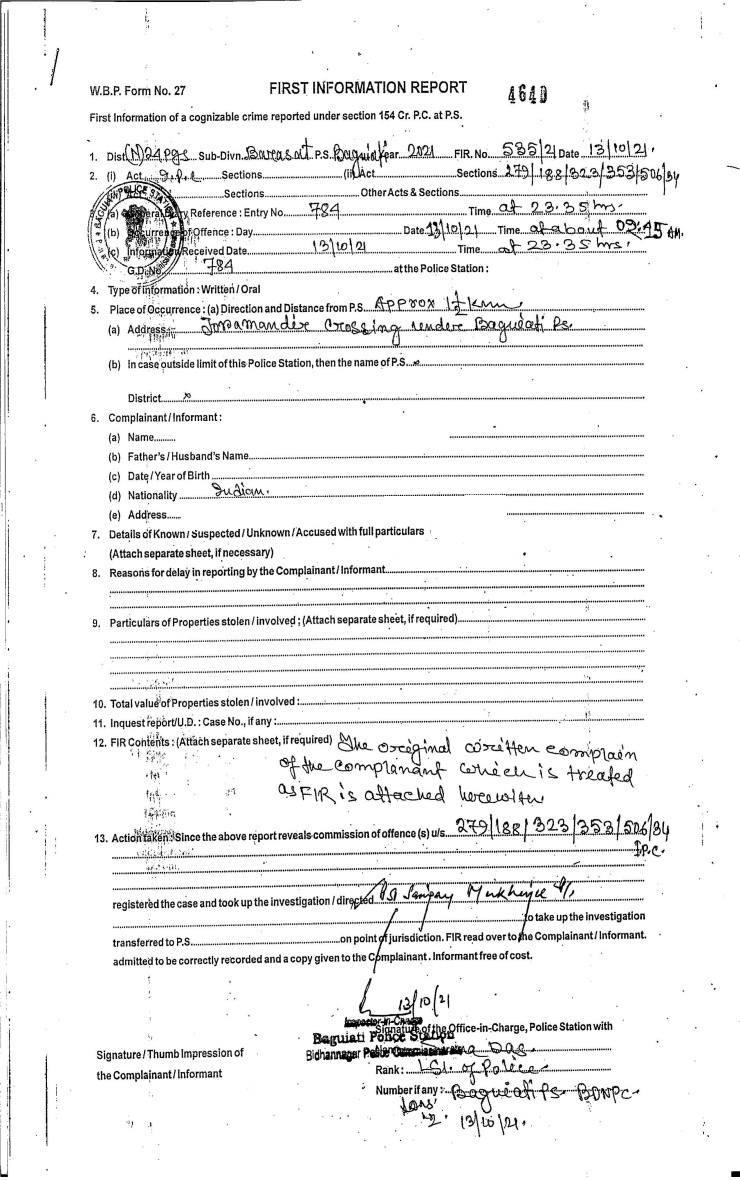 W.B.P. Form No. 27 FIRST INFORMATION REPORT 4640
First Information of a cognizable crime reported under section 154 Cr. P.C. at P.S.
1. Dist (N) 24 Pgs Sub-Divn. Barasat P.S. Baguiati Year 2021 FIR. No. 535/21 Date 13/10/21.
2. (i) Act I.P.C Sections (ii) Act Sections 279/188/323/353/506/34
Sections Other Acts & Sections
(a) General Diary Reference : Entry No. 784 Time at 23.35 hrs.
(b) Occurrence of Offence : Day Date 13/10/21 Time at about 09:45 AM.
(c) Information Received Date 13/10/21 Time at 23.35 hrs.
G.D. No. 784 at the Police Station :
4. Type of Information : Written / Oral
5. Place of Occurrence : (a) Direction and Distance from P.S. Approx 1½ Km
(a) Address Crossing under Baguiati Ps.
(b) In case outside limit of this Police Station, then the name of P.S. x
District x
6. Complainant / Informant :
(a) Name
(b) Father's / Husband's Name
(c) Date / Year of Birth
(d) Nationality Indian.
(e) Address
7. Details of Known / Suspected / Unknown / Accused with full particulars
(Attach separate sheet, if necessary)
8. Reasons for delay in reporting by the Complainant / Informant
9. Particulars of Properties stolen / involved ; (Attach separate sheet, if required)
10. Total value of Properties stolen / involved :
11. Inquest report/U.D. : Case No., if any :
12. FIR Contents : (Attach separate sheet, if required) The original written complain
of the complenant which is treated
as FIR is attached herewith
13. Action taken : Since the above report reveals commission of offence (s) u/s 279/188/323/353/506/34
I.P.C.
registered the case and took up the investigation / directed Sanjay Mukherjee
to take up the investigation
transferred to P.S. on point of jurisdiction. FIR read over to the Complainant / Informant.
admitted to be correctly recorded and a copy given to the Complainant. Informant free of cost.
13/10/21
Inspector-in-Charge
Signature of the Office-in-Charge, Police Station with
Baguiati Police Station
Bidhannagar Police Commissionerate Das
Signature / Thumb Impression of
the Complainant / Informant
Rank : of Police
Number if any : Baguiati Ps. BDNPC.
13/10/21.